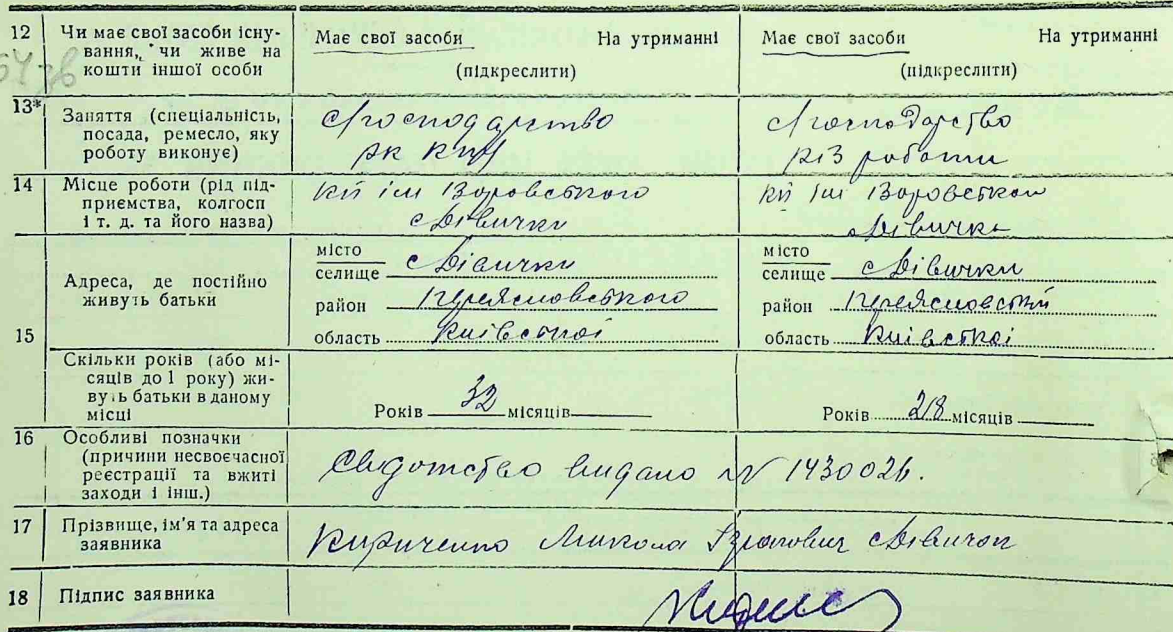 12 Чи має свої засоби існу-
вання, чи живе на
кошти іншої особи
Має свої засоби На утриманні
(підкреслити)
Має свої засоби На утриманні
(підкреслити)
13* Заняття (спеціальність,
посада, ремесло, яку
роботу виконує)
с/господарство
с/господарство
різ роботи
14 Місце роботи (рід під-
приємства, колгосп
і т. д. та його назва)
кп ім Воровського
с Дівички
кп ім Воровского
с Дівички
15 Адреса, де постійно
живуть батьки
місто
селище с Дівички
район Переяславського
область Київської
місто
селище с Дівички
район Переяславський
область Київської
Скільки років (або мі-
сяців до 1 року) жи-
вуть батьки в даному
місці
Років 32 місяців
Років 28 місяців
16 Особливі позначки
(причини несвоєчасної
реєстрації та вжиті
заходи і інш.)
Свідотство видано № 1430026.
17 Прізвище, ім'я та адреса
заявника
Кириченко Микола с Дівички
18 Підпис заявника